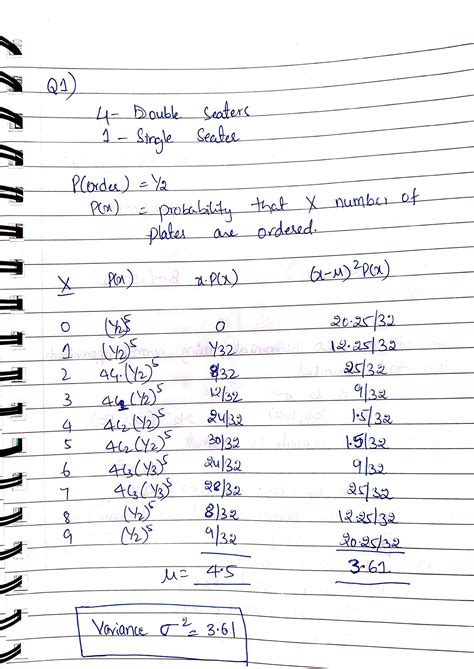 Q1)
4- Double Seaters
1 - Single Seater
P(order) = 1/2
P(x) = probability that X number of
plates are ordered.
X P(x) x.P(x) (x-μ)²P(x)
0 (1/2)⁵ 0 20.25/32
1 (1/2)⁵ 1/32 12.25/32
2 4C₁(1/2)⁵ 8/32 25/32
3 4C₁(1/2)⁵ 12/32 9/32
4 4C₂(1/2)⁵ 24/32 1.5/32
5 4C₂(1/2)⁵ 30/32 1.5/32
6 4C₃(1/3)⁵ 24/32 9/32
7 4C₃(1/3)⁵ 28/32 25/32
8 (1/2)⁵ 8/32 12.25/32
9 (1/2)⁵ 9/32 20.25/32
μ= 4.5 3.61
Variance σ² = 3.61